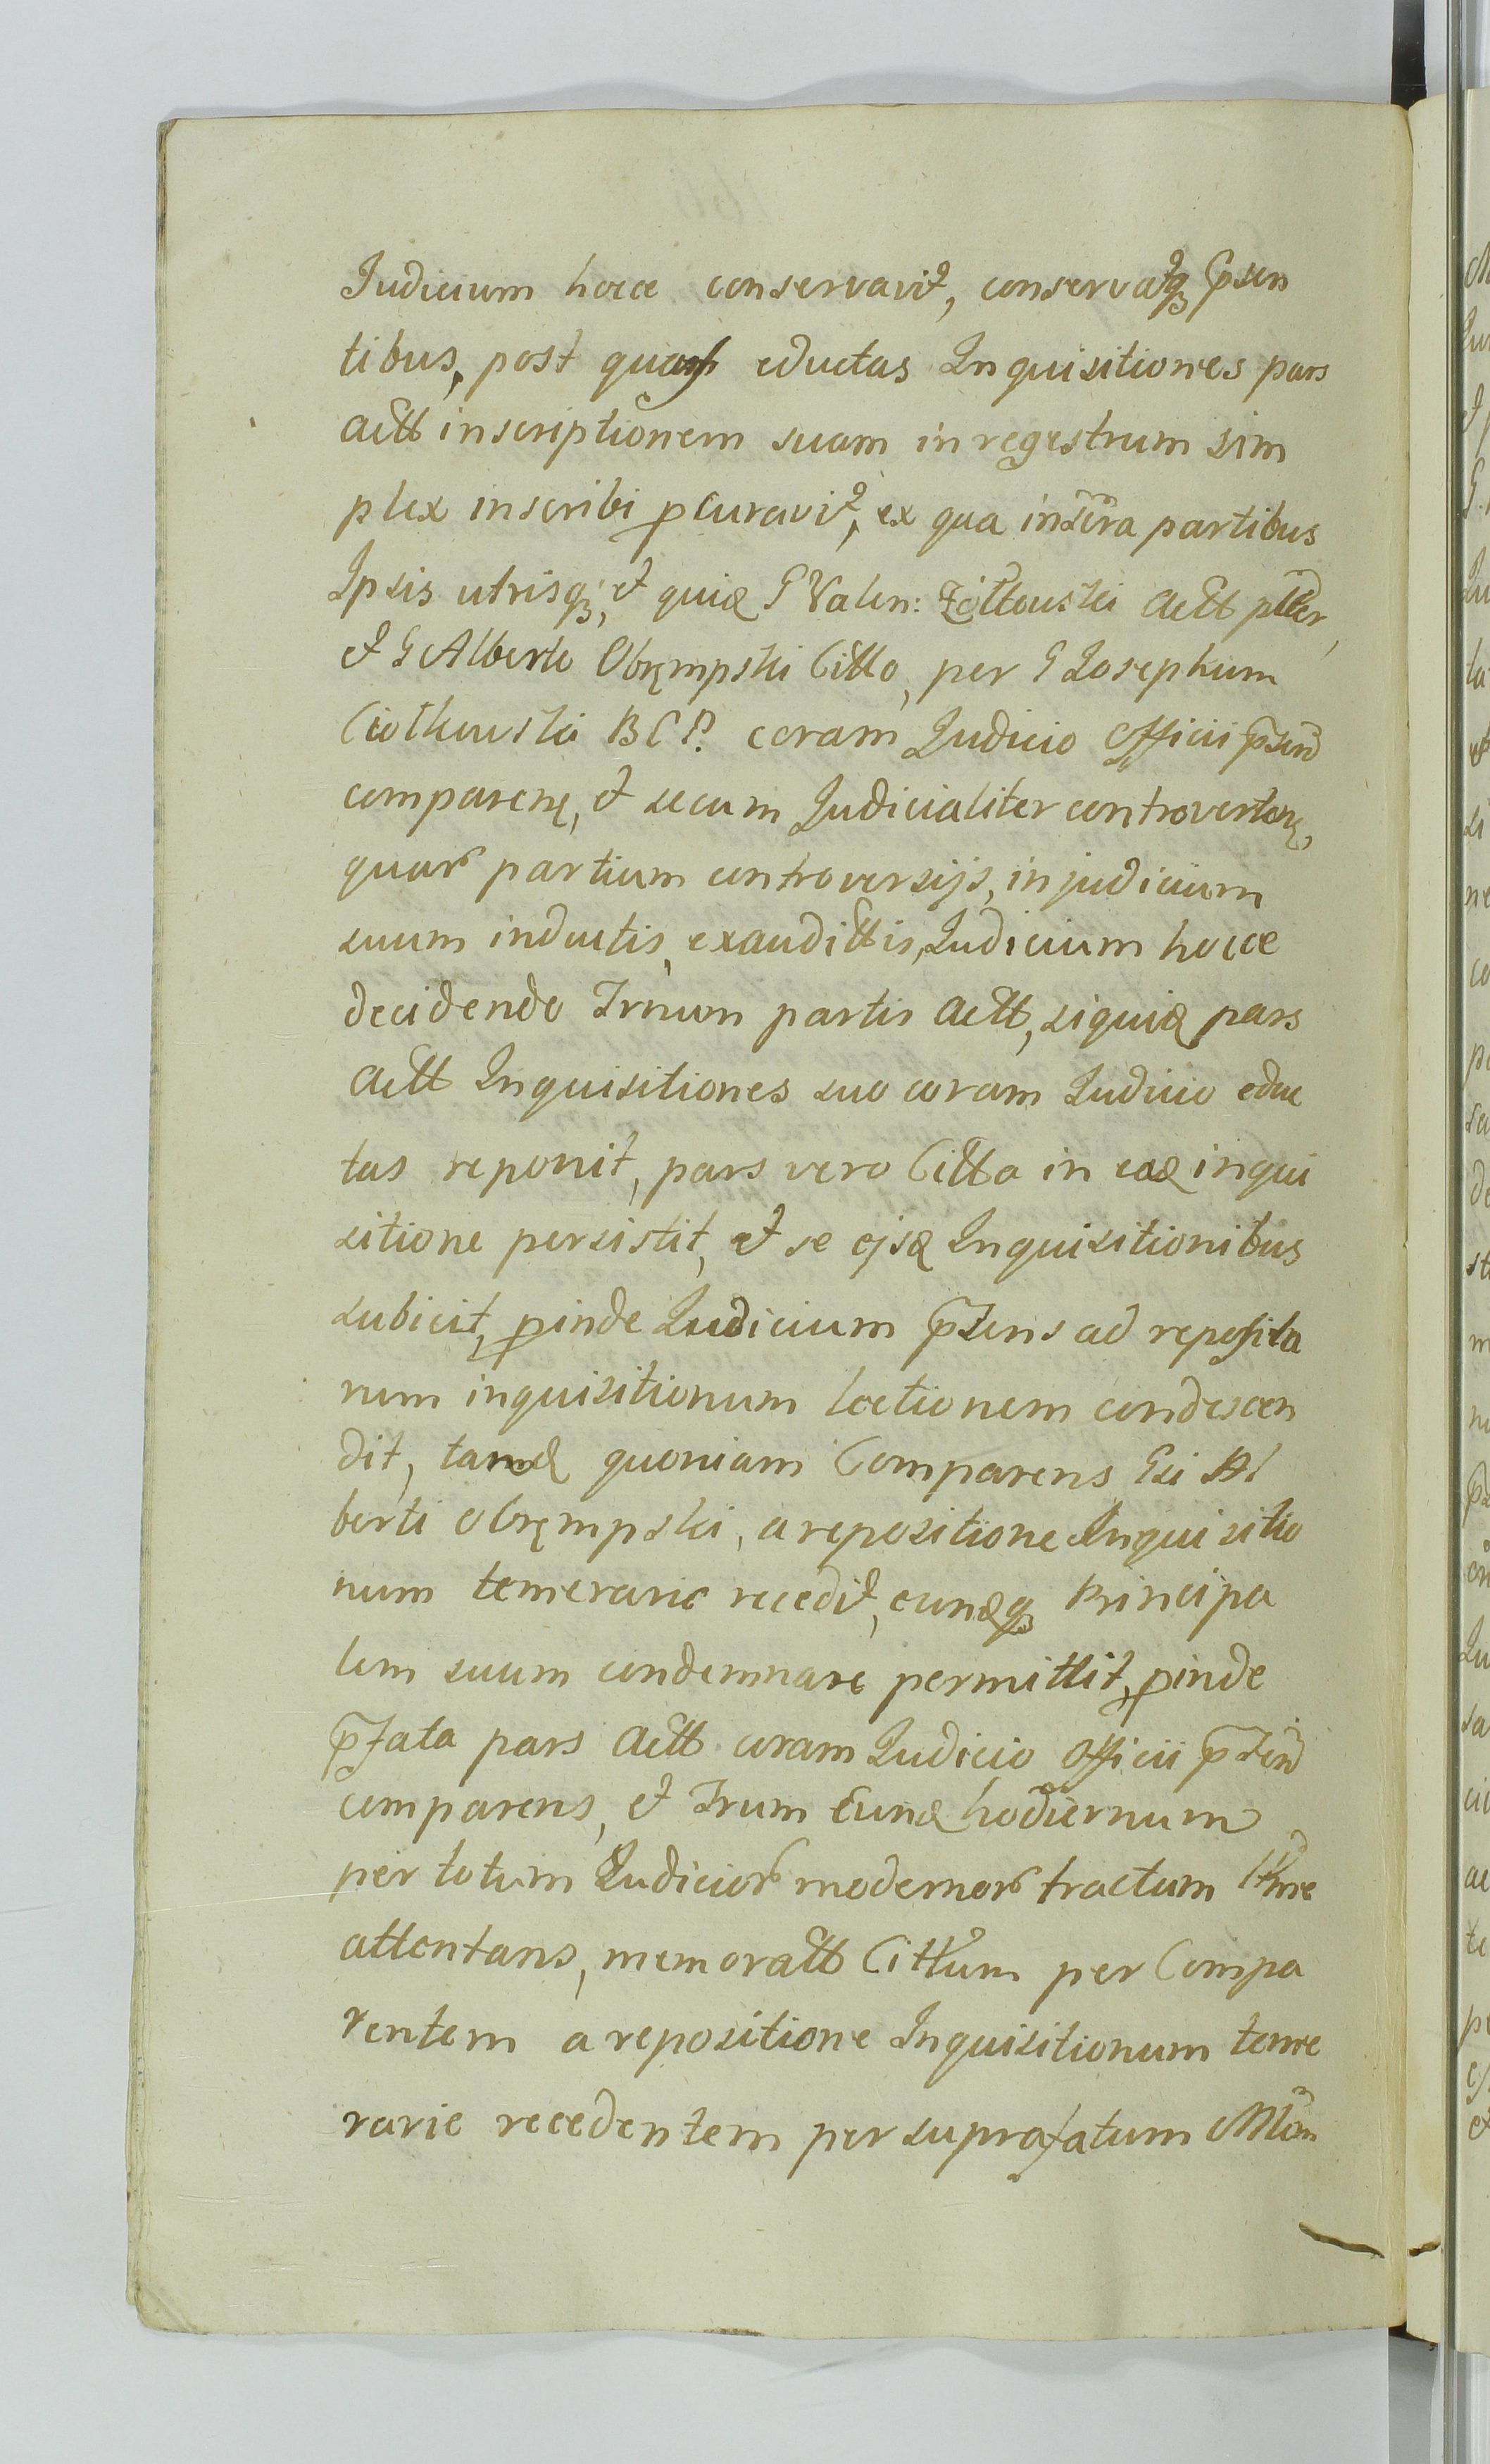 Judicium hocce conservavit, conservatq₃ p̃sen
tibus, post quas eductas Inquisitiones pars
Actt inscriptionem suam in regestrum sim
plex inscribi pcuravit, ex qua inscra partibus
Ipsis utrisq₃, et quia G Valen: Zołtowski Actt
et G Alberto Obrępski Citto, per G Josephum
Ciotkowski B C P. coram Judicio Officii p̃sen
comparen, et secum Judicialiter controverten,
quar partium controversijs, in judicium
suum inductis, exaudittis, Judicium hocce
decidendo Trmion partis Actt, siquid pars
Actt Inquisitiones suo coram Judicio educ
tas reponit, pars vero Citta in ead inqui
sitione persistit, et se ejsd Inquisitionibus
subicit, pinde Judicium p̃sens ad reposita
rum inquisitionum lectionem condescen
dit, tamd quoniam Comparens Gsi Al
berti Obręmpski, a repositione Inquisitio
num temerarie recedit, eundq₃ Principa
lem suum condemnare permittit, pinde
p̃fata pars Actt coram Judicio Officii p̃sen
comparens, et Trum Eund hodiernum
per totum Judicior modernor tractum lttme
attentans, memoratt Cittum per Compa
rentem a repositione Inquisitionum teme
rarie recedentem per suprafatum Min